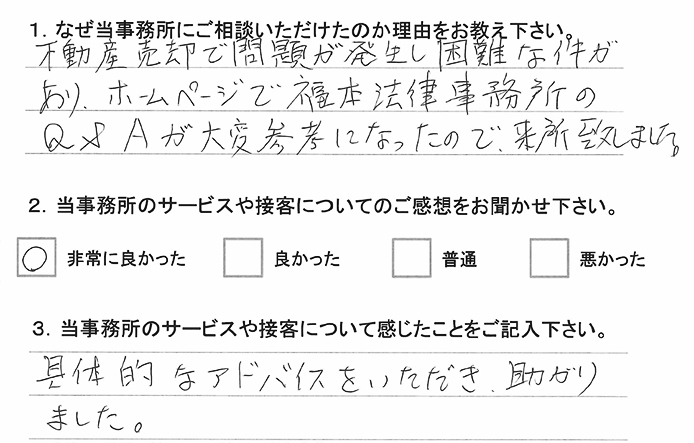 1. なぜ当事務所にご相談いただけたのか理由をお教え下さい。
不動産売却で問題が発生し困難な件が
あり、ホームページで福本法律事務所の
Q&Aが大変参考になったので、来所致しました。
2. 当事務所のサービスや接客についてのご感想をお聞かせ下さい。
○ 非常に良かった 良かった 普通 悪かった
3. 当事務所のサービスや接客について感じたことをご記入下さい。
具体的なアドバイスをいただき、助かり
ました。